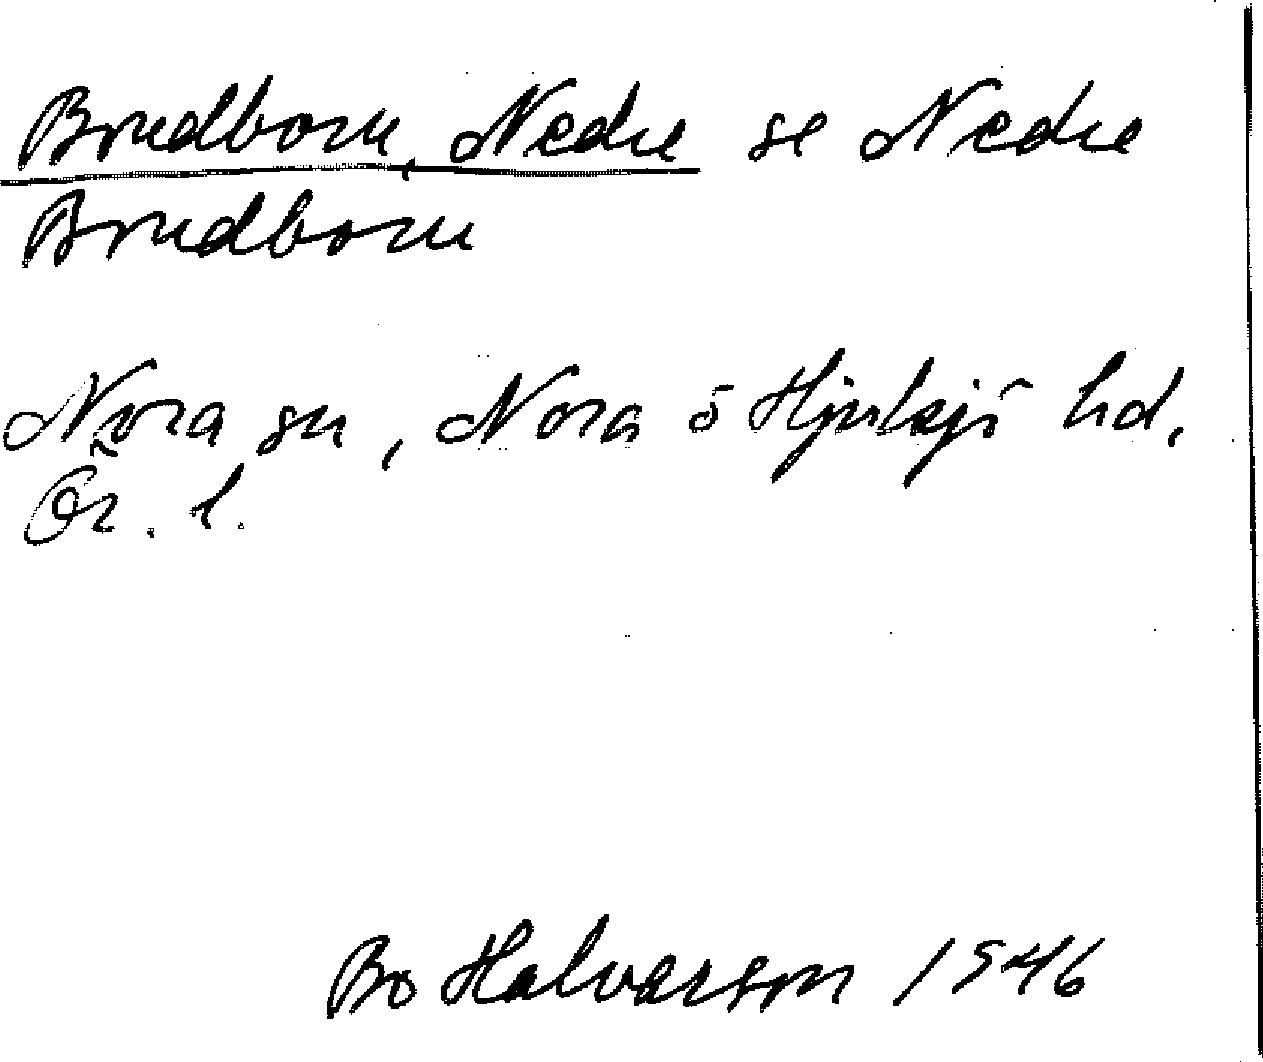 Bredborn, Nedre se Nedre
Bredborn
Nora sn, Nora o Hjulsjö hd,
Ör. l.
Bo Halvarson 1946